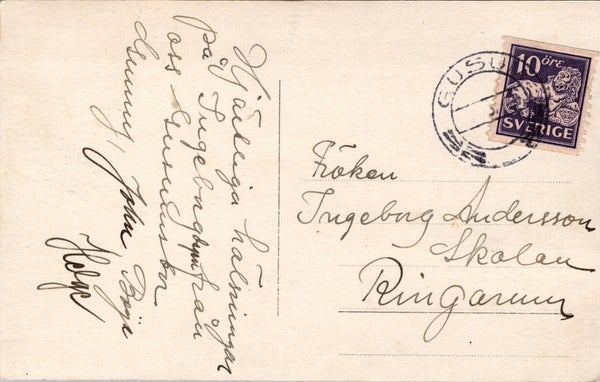 Hjärtliga hälsningar
på Ingeborg fran
oss Gusumsbor
Gunny, John Börje
Helge
GUSUM
10 ÖRE
SVERIGE
Fröken
Ingeborg Andersson
Skolan
Ringarum